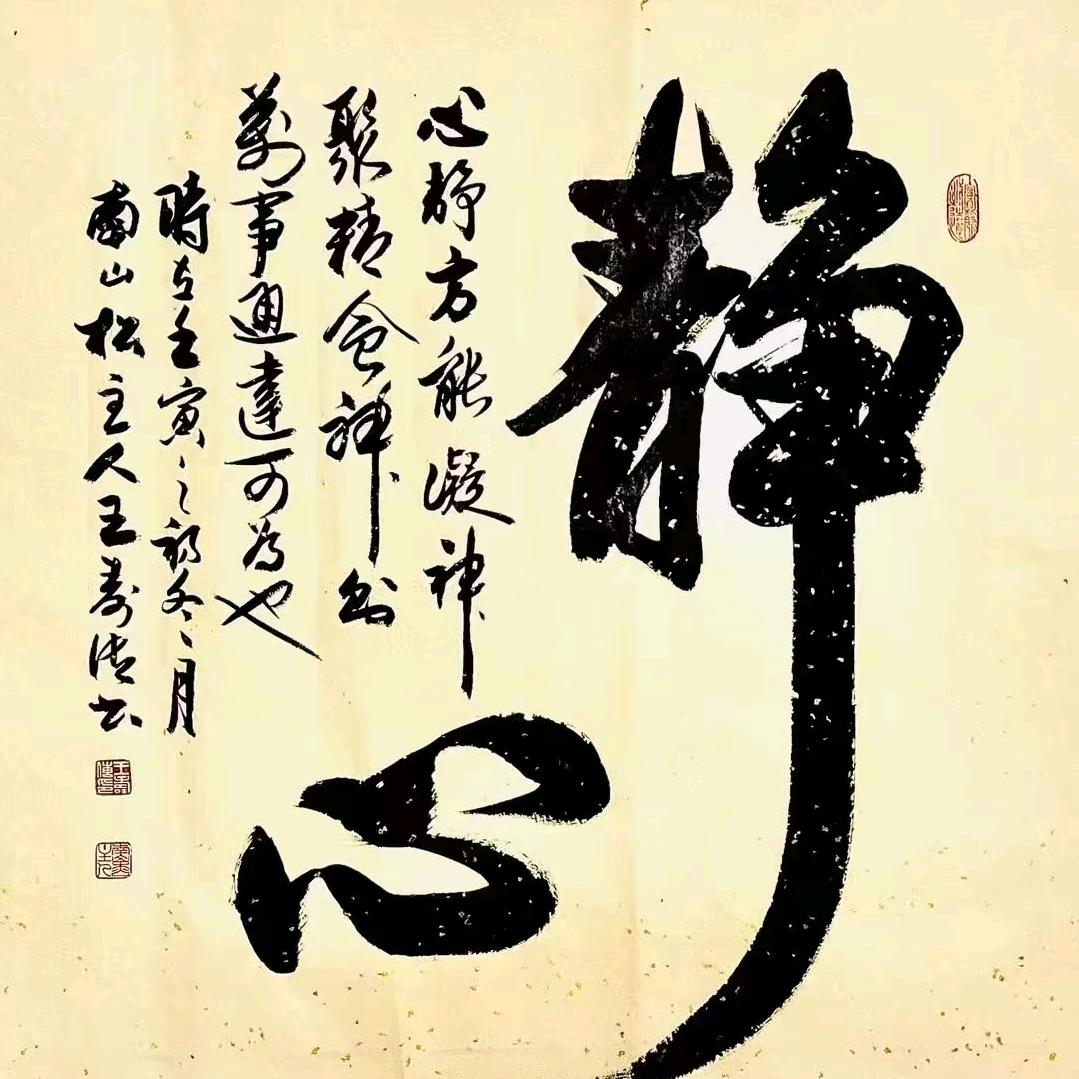 靜心
心静方能凝神
聚精会神
萬事通達可为也
時在壬寅之初冬月
南山松主人王寿书